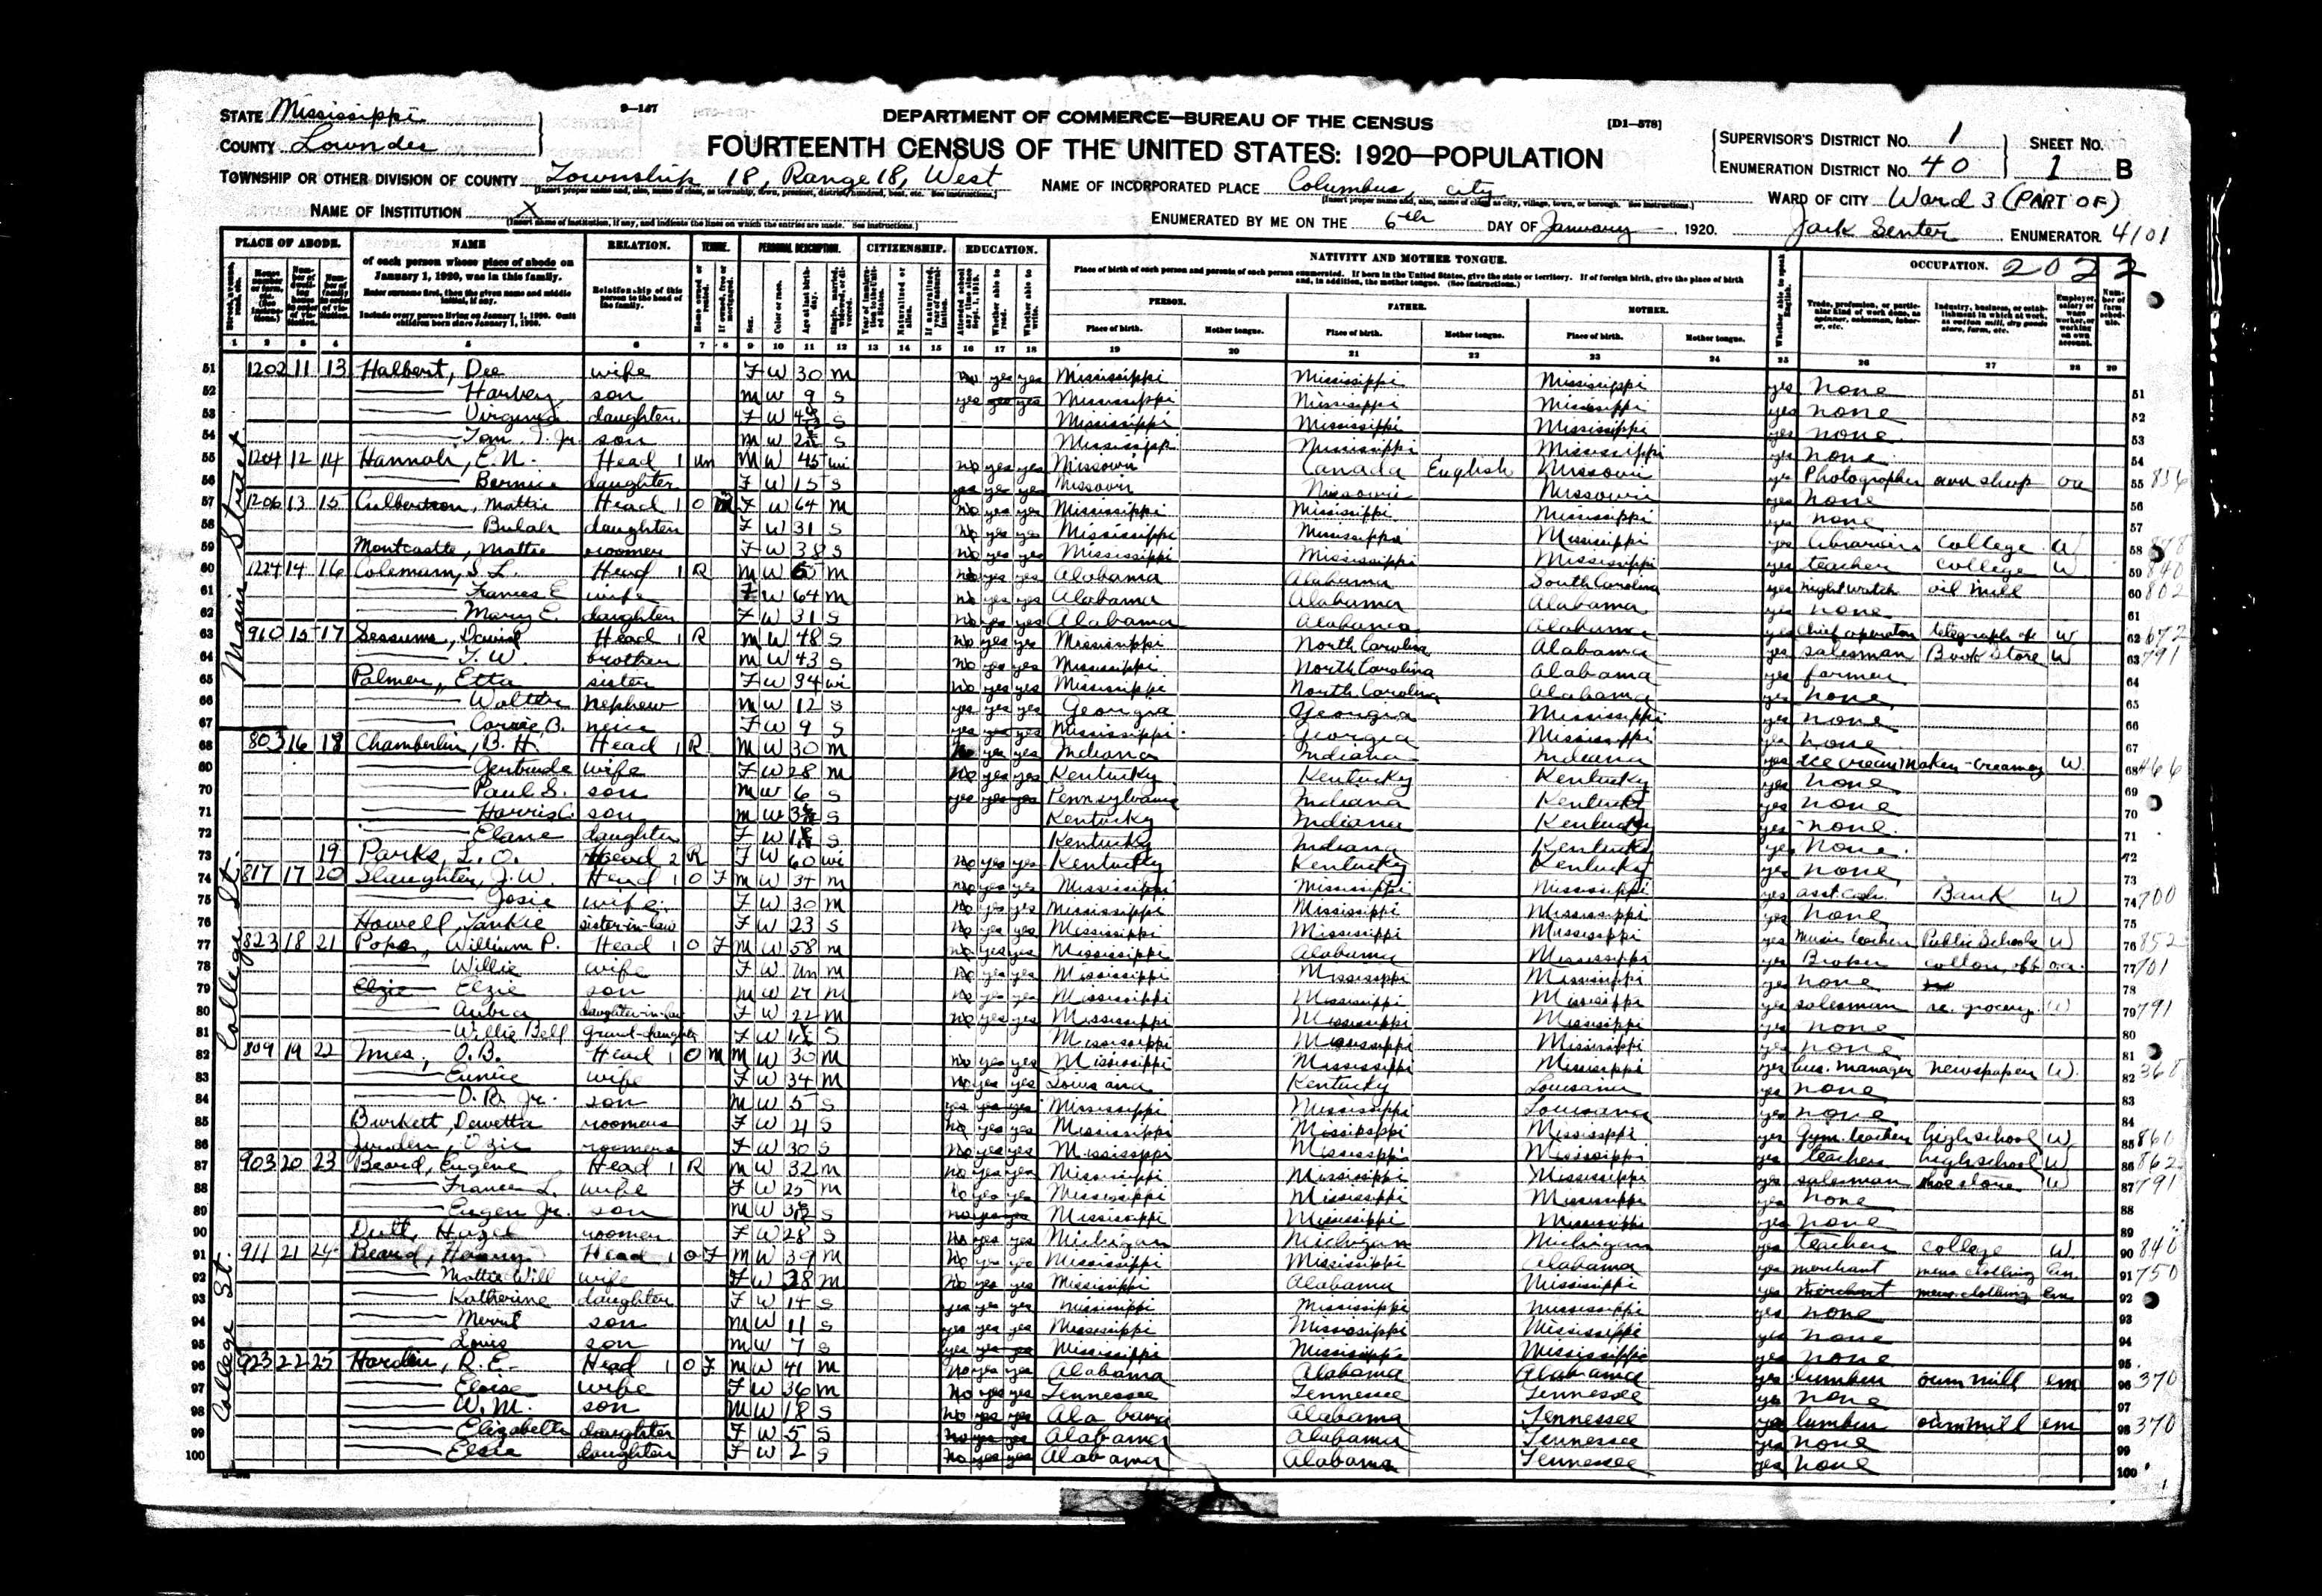 9—147
DEPARTMENT OF COMMERCE—BUREAU OF THE CENSUS
[D1—578]
FOURTEENTH CENSUS OF THE UNITED STATES: 1920—POPULATION
STATE Mississippi
COUNTY Lowndes
TOWNSHIP OR OTHER DIVISION OF COUNTY Township 18, Range 18, West
NAME OF INSTITUTION X
NAME OF INCORPORATED PLACE Columbus, city
ENUMERATED BY ME ON THE 6th DAY OF January, 1920.
SUPERVISOR'S DISTRICT No. 1
ENUMERATION DISTRICT No. 40
SHEET No. 1 B
WARD OF CITY Ward 3 (PART OF)
Jack Senter ENUMERATOR 4101
2022
PLACE OF ABODE. NAME RELATION. TENURE. PERSONAL DESCRIPTION. CITIZENSHIP. EDUCATION. NATIVITY AND MOTHER TONGUE. OCCUPATION.
of each person whose place of abode on January 1, 1920, was in this family.
Enter surname first, then the given name and middle initial, if any.
Include every person living on January 1, 1920. Omit children born since January 1, 1920.
Relationship of this person to the head of the family.
Place of birth of each person and parents of each person enumerated. If born in the United States, give the state or territory. If of foreign birth, give the place of birth and, in addition, the mother tongue. (See instructions.)
PERSON. FATHER. MOTHER.
Place of birth. Mother tongue. Place of birth. Mother tongue. Place of birth. Mother tongue.
1 2 3 4 5 6 7 8 9 10 11 12 13 14 15 16 17 18 19 20 21 22 23 24 25 26 27 28 29
Main Street
College St.
College St.
51 1202 11 13 Halbert, Dee wife F W 30 m no yes yes Mississippi Mississippi Mississippi yes none
52 Harvey son m w 9 s yes yes yes Mississippi Mississippi Mississippi yes none
53 Virginia daughter F W s Mississippi Mississippi Mississippi yes none
54 Tom T. Jr. son m W s Mississippi Mississippi Mississippi yes none
55 1204 12 14 Hannah, E.N. Head 1 un M W 45 wi no yes yes Missouri Canada English Missouri yes Photographer own shop oa
56 Bernice daughter F W 15 s yes yes yes Missouri Missouri Missouri yes none
57 1206 13 15 Culbertson, Mattie Head 1 O m F W 64 m no yes yes Mississippi Mississippi Mississippi yes none
58 Bulah daughter F W 31 s no yes yes Mississippi Mississippi Mississippi yes librarian college W
59 Montcastle, Mattie roomer F W 38 s no yes yes Mississippi Mississippi Mississippi yes teacher college W 840
60 1224 14 16 Colemann, S.L. Head 1 R m W m no yes yes Alabama Alabama South Carolina yes night watch oil mill 802
61 Frances E wife F W 64 m no yes yes Alabama Alabama Alabama yes none
62 Mary E. daughter F W 31 s no yes yes Alabama Alabama Alabama yes chief operator telegraph of W 672
63 910 15 17 Sessums, David Head 1 R m W 48 s no yes yes Mississippi North Carolina Alabama yes salesman Book Store W 791
64 T. W. brother m W 43 s no yes yes Mississippi North Carolina Alabama yes farmer
65 Palmer, Etta sister F W 34 wi no yes yes Mississippi North Carolina Alabama yes none
66 Walter nephew m W 12 s yes yes yes Georgia Georgia Mississippi yes none
67 Carrie B. neice F W 9 s yes yes yes Mississippi Georgia Mississippi yes none
68 803 16 18 Chamberlin, B.H. Head 1 R m W 30 m no yes yes Indiana Indiana Indiana yes ice cream maker creamery W. 466
69 Gertrude wife F W 28 m no yes yes Kentucky Kentucky Kentucky yes none
70 Paul S. son m w 6 s yes yes yes Pennsylvania Indiana Kentucky yes none
71 Harris C. son m w s Kentucky Indiana Kentucky yes none
72 Elane daughter F W s Kentucky Indiana Kentucky yes none
73 19 Parks, L. O. Head 2 R F W 60 wi no yes yes Kentucky Kentucky Kentucky yes none
74 817 17 20 Slaughter, J.W. Head 1 O F m W 34 m no yes yes Mississippi Mississippi Mississippi yes asst. cash. Bank W 700
75 Josie wife F W 30 m no yes yes Mississippi Mississippi Mississippi yes none
76 Howell, Yankie sister-in-law F W 23 s no yes yes Mississippi Mississippi Mississippi yes music teacher Public Schools W 852
77 823 18 21 Pope, William P. Head 1 O F m W 58 m no yes yes Mississippi Alabama Mississippi yes Broker cotton off oa 701
78 Willie wife F W un m no yes yes Mississippi Mississippi Mississippi yes none
79 Elzie Elzie son m W 27 m no yes yes Mississippi Mississippi Mississippi yes salesman re. grocery W 791
80 Aubra daughter-in-law F W 22 m no yes yes Mississippi Mississippi Mississippi yes none
81 Willie Bell grand-daughter F W s Mississippi Mississippi Mississippi yes none
82 809 19 22 Imes, O.B. Head 1 O m m W 30 m no yes yes Mississippi Mississippi Mississippi yes bus. manager newspaper W. 368
83 Eunice wife F W 34 m no yes yes Louisiana Kentucky Louisiana yes none
84 O.B. Jr. son m W 5 s yes yes yes Mississippi Mississippi Louisiana yes none
85 Burkett, Dewetta roomer F W 21 s no yes yes Mississippi Mississippi Mississippi yes Gym. teacher high school W 860
86 Ozie roomer F W 30 s no yes yes Mississippi Mississippi Mississippi yes teacher high school W 862
87 903 20 23 Beard, Eugene Head 1 R m W 32 m no yes yes Mississippi Mississippi Mississippi yes salesman shoe store W 791
88 Frances L. wife F W 25 m no yes yes Mississippi Mississippi Mississippi yes none
89 Eugen Jr. son m W s no yes yes Mississippi Mississippi Mississippi yes none
90 Hazel roomer F W 28 s no yes yes Michigan Michigan Michigan yes teacher college W. 840
91 911 21 24 Beard, Head 1 O F m W 39 m no yes yes Mississippi Mississippi Alabama yes merchant mens clothing em 750
92 Mattie Will wife F W 38 m no yes yes Mississippi Alabama Mississippi yes merchant mens clothing em
93 Katherine daughter F W 14 s yes yes yes Mississippi Mississippi Mississippi yes none
94 son m W 11 s yes yes yes Mississippi Mississippi Mississippi yes none
95 Louis son m W 7 s yes yes yes Mississippi Mississippi Mississippi yes none
96 923 22 25 Harden, R.E. Head 1 O F m W 41 m no yes yes Alabama Alabama Alabama yes lumber own mill em 370
97 Eloise wife F W 36 m no yes yes Tennessee Tennessee Tennessee yes none
98 W.M. son m W 18 s no yes yes Alabama Alabama Tennessee yes lumber own mill em 370
99 Elizabeth daughter F W 5 s no yes yes Alabama Alabama Tennessee yes none
100 Elsie daughter F W 2 s no yes yes Alabama Alabama Tennessee yes none